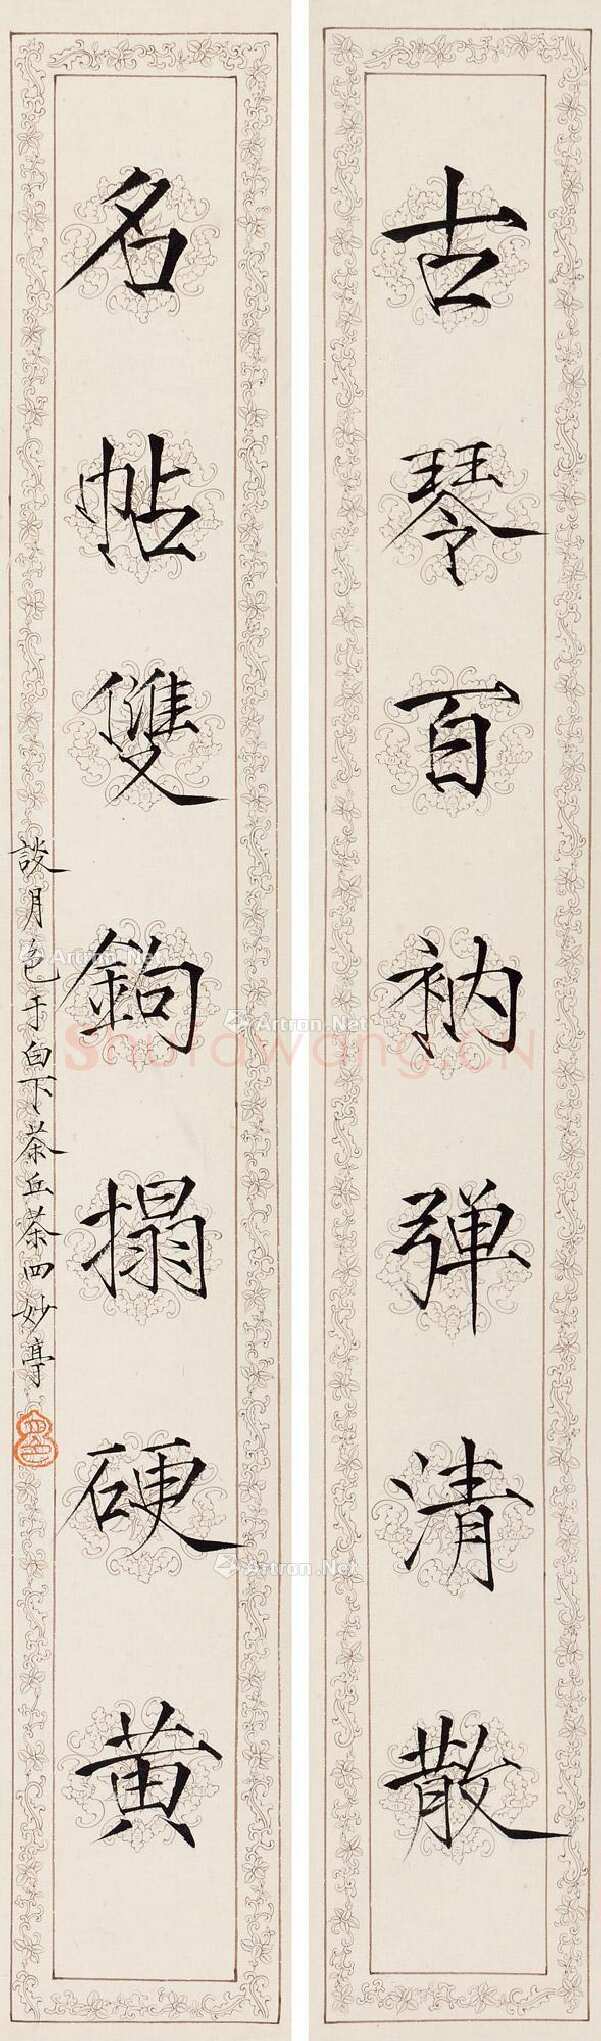 古琴百衲弹清散
名帖雙鉤搨硬黄
談月色于白下茶丘茶四妙亭
Artron.Net
Artron.Net
Artron.Net
Artron.Net
Shufawang.CN